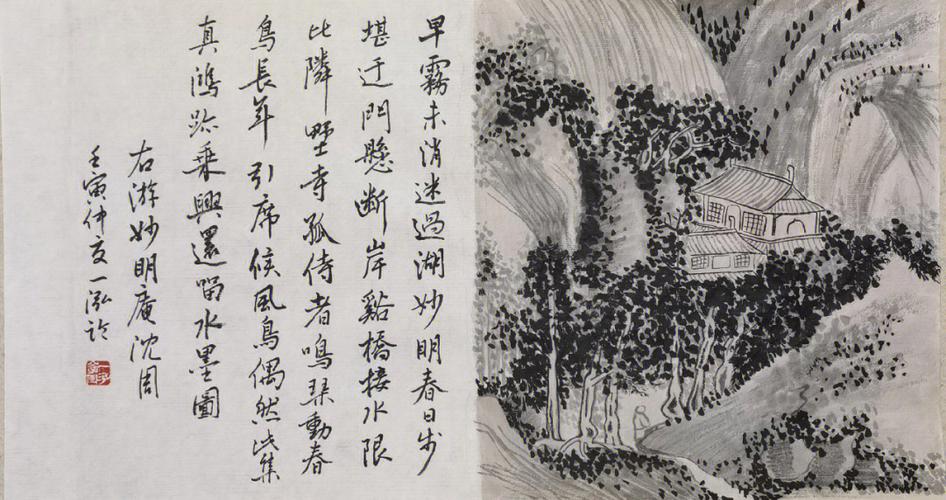 早霧未消迷過湖妙明春日步
堪迂門懸斷岸谿橋接水限
比隣墅寺孤侍者鳴琹動春
鳥長年引席候風鳥偶然此集
真鴻跡乘興還留水墨圖
右游妙明庵沈周
壬寅仲夏一泓